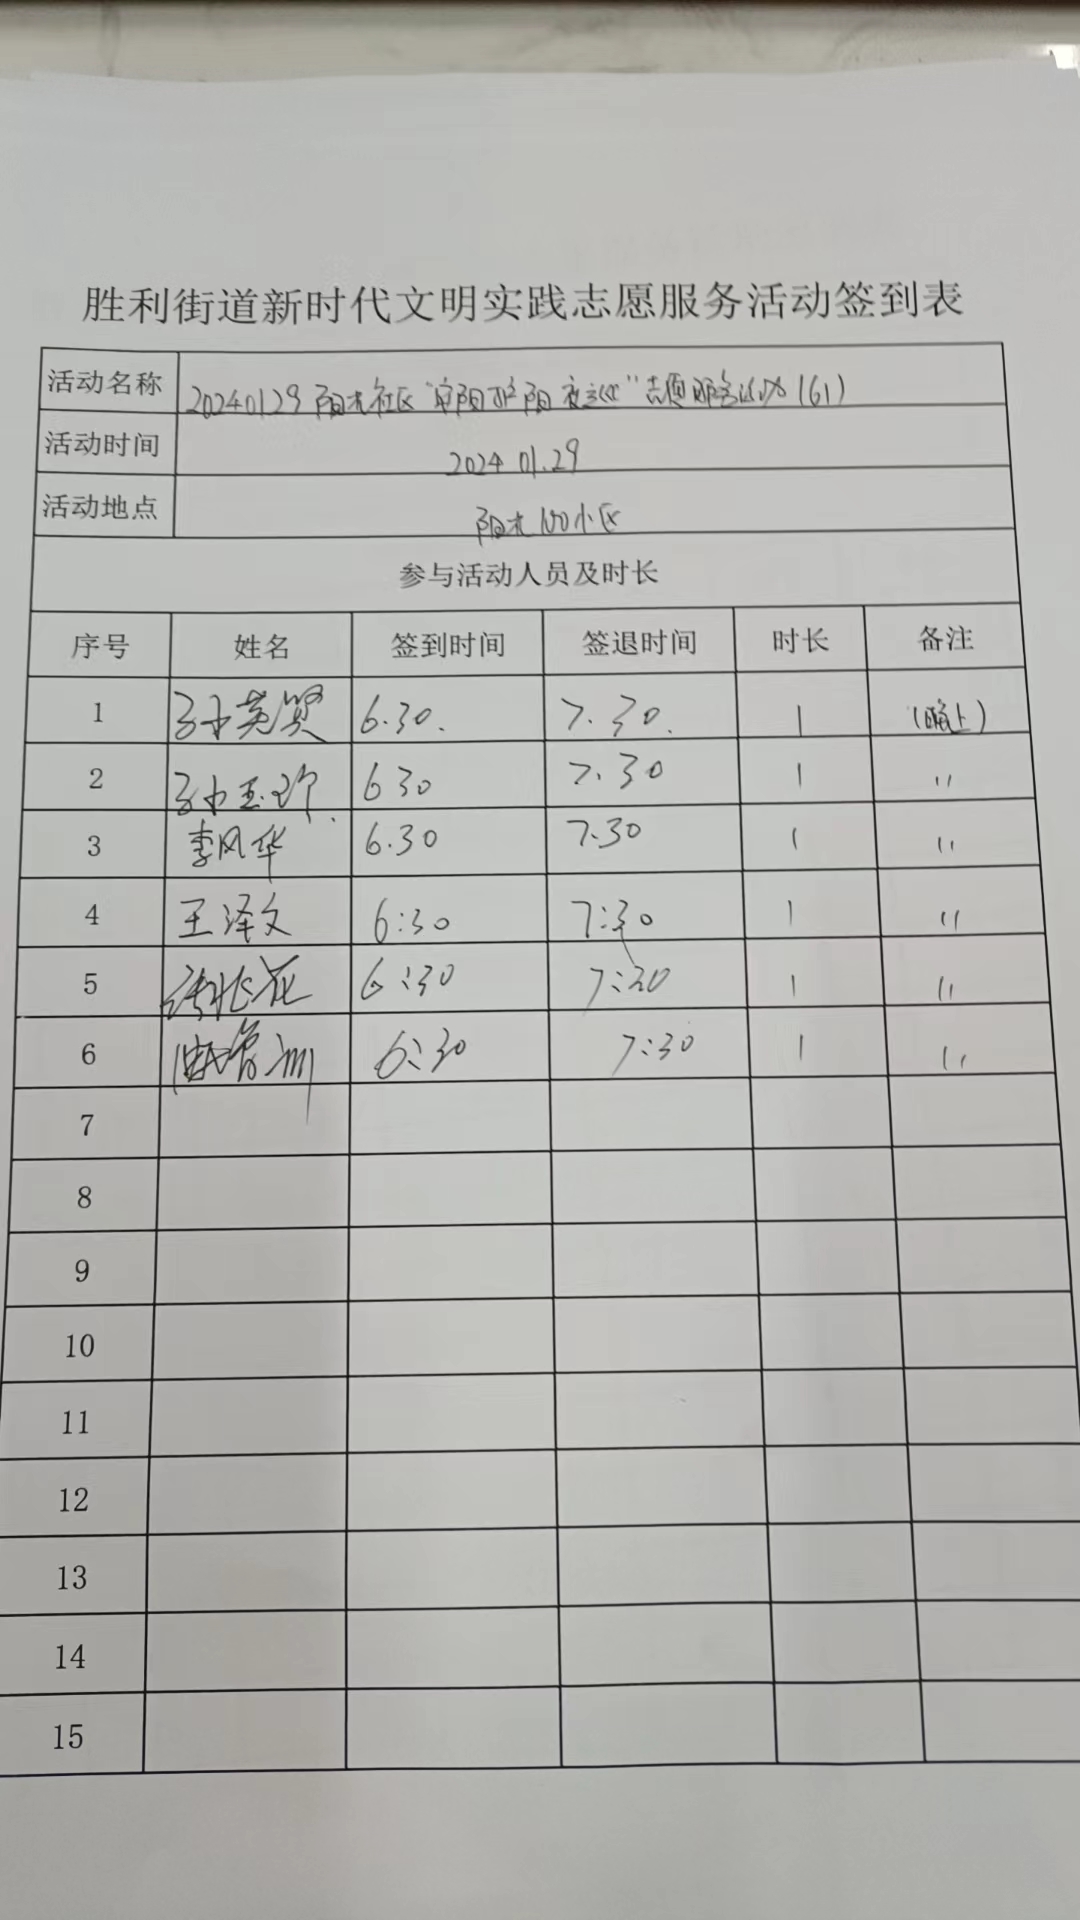 胜利街道新时代文明实践志愿服务活动签到表
活动名称 20240129 阳光社区 阳 夜巡”志愿服务活动(61)
活动时间 2024 01.29
活动地点 阳光100小区
参与活动人员及时长
序号 姓名 签到时间 签退时间 时长 备注
1 孙英贤 6.30. 7.30. 1 (晚上)
2 孙玉珍 6 30 7.30 1 〃
3 李风华 6.30 7.30 1 〃
4 王泽文 6:30 7:30 1 〃
5 6:30 7:30 1 〃
6 6:30 7:30 1 〃
7
8
9
10
11
12
13
14
15